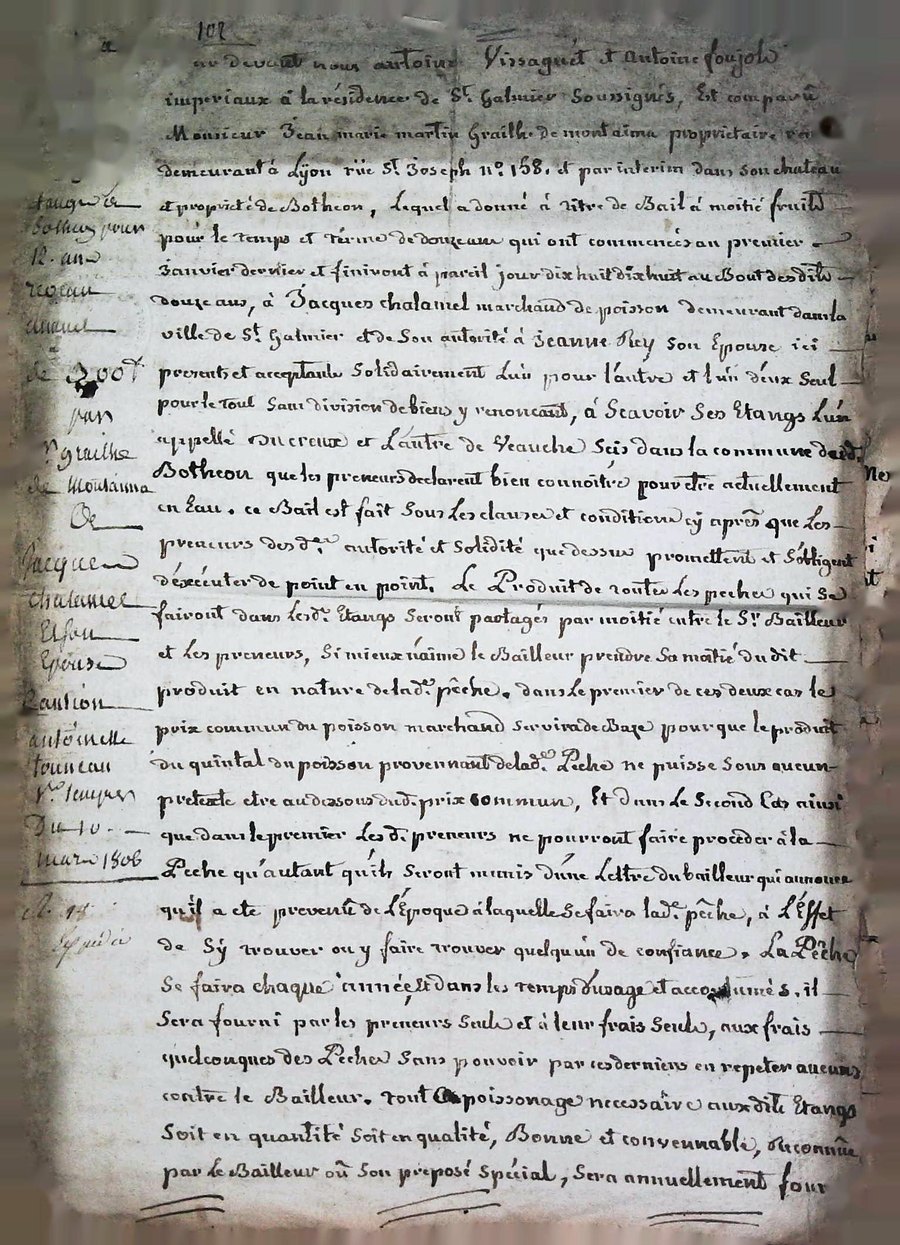 102
par devant nous antoine Vissaguet et Antoine foujols
imperiaux à la résidence de St. Galmier Soussignés, Est comparu
Monsieur Jean marie martin Grailhe de montaima proprietaire
demeurant à Lyon rüe St. Joseph n.º 158. et par interim dans son chateau
et proprieté de Botheon, Lequel a donné à titre de Bail à moitié fruits
pour le temps et terme de douze ans qui ont commencés au premier
Janvier dernier et finiront à pareil jour dix huit dix huit au Bout des dits
douze ans, à Jacques chalamel marchand de poisson demeurant dans la
ville de St. Galmier et de Son autorité à Jeanne Rey Son Epouse ici
presents et acceptants Solidairement L'un pour l'autre et l'un d'eux Seul
pour le tout Sans division de biens y renoncant, à Scavoir Ses Etangs L'un
appellé Du creux et L'autre de Veauche Scis dans la commune dud.
Botheon que les preneurs declarent bien connoitre pour etre actuellement
en Eau. ce Bail est fait Sous Les clauses et conditions cy après que Les
preneurs des d.es autorité et Solidité que dessus promettent et S'obligent
d'éxécuter de point en point. Le Produit de toutes Les peches qui Se
fairont dans Les d.s Etangs Seront partagés par moitié entre le Sr. Bailleur
et Les preneurs, Si mieux n'aime le Bailleur prendre Sa moitié du dit
produit en nature de lad.e pêche. dans Le premier de ces deux cas le
prix commun du poisson marchand Servira de Baze pour que le produit
du quintal du poisson provennant de lad.e Peche ne puisse Sous aucun
pretexte etre au dessous dud. prix commun, Et dans Le Second Cas ainsi
que dans le premier Les d. preneurs ne pourront faire procéder à la
Peche qu'autant qu'ils Seront munis d'une Lettre du bailleur qui annonce
qu'il a ete prevenu de L'Epoque à laquelle Se faira lad.e pêche, à L'Effet
de S'y trouver ou y faire trouver quelqu'un de confiance. La Pêche
Se faira chaque année, Et dans les temps d'usage et accoutumés. il
Sera fourni par les preneurs Seuls et à leur frais Seuls, aux frais
quelconques des Peches Sans pouvoir par ces derniers en repeter aucuns
contre le Bailleur. tout poissonage necessaire aux dits Etangs
Soit en quantité Soit en qualité, Bonne et convennable, Reconnue
par Le Bailleur ou Son preposé Spécial, Sera annuellement four
Botheon pour
12. ans
annuel
de 300 f
par
Sr. grailhe
de Montaima
De
Jacques
chalamel
Et son
Epouse
Caution
antoinette
touneau
Du 10.
mars 1806